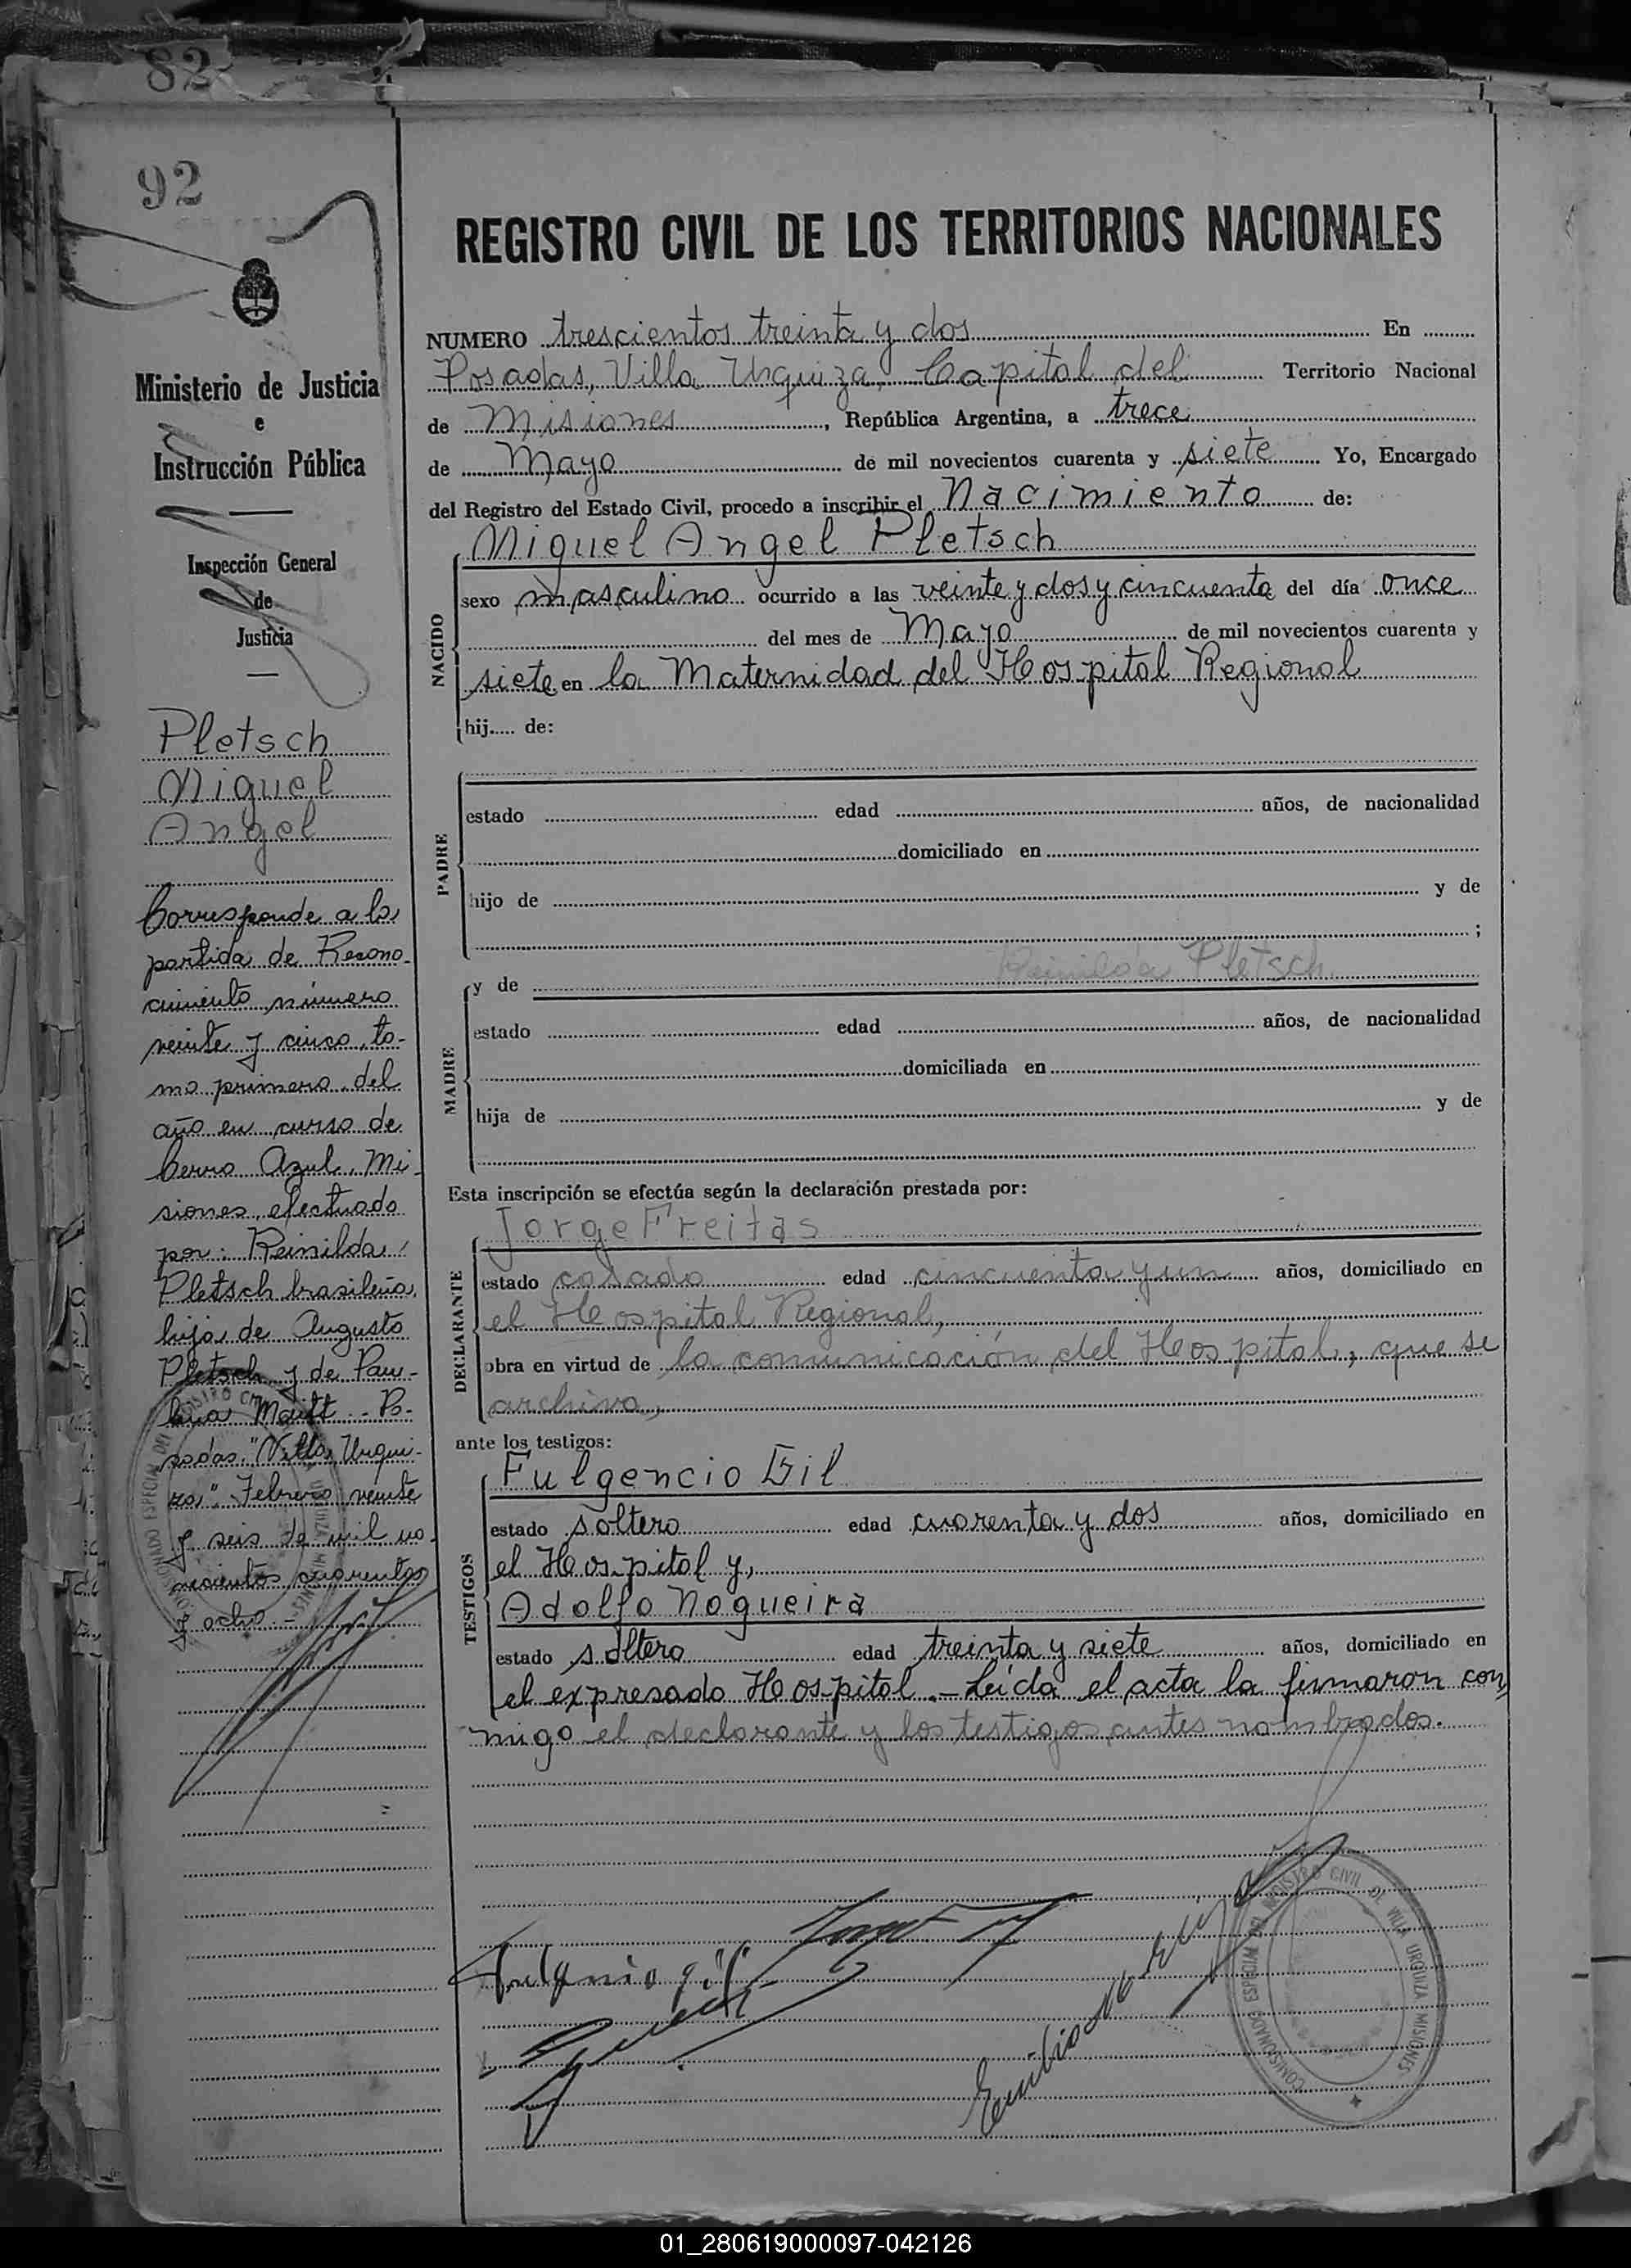 82
92
Ministerio de Justicia
e
Instrucción Pública
Inspección General
de
Justicia
Pletsch
Miguel
Angel
Corresponde a la
partida de Recono-
cimiento número
veinte y cinco, to-
mo primero del
año en curso de
Cerro Azul, Mi-
siones, efectuado
por: Reinilda
Pletsch brasileña,
hija de Augusto
Pletsch y de Pau-
lina - Po-
sadas, "Villa Urqui-
za". Febrero veinte
y seis de mil no-
vecientos cuarenta
y ocho.-
REGISTRO CIVIL DE LOS TERRITORIOS NACIONALES
NUMERO trescientos treinta y dos En
Posadas, Villa Urquiza, Capital del Territorio Nacional
de Misiones, República Argentina, a trece
de Mayo de mil novecientos cuarenta y siete Yo, Encargado
del Registro del Estado Civil, procedo a inscribir el Nacimiento de:
Miguel Angel Pletsch
NACIDO
sexo masculino ocurrido a las veinte y dos y cincuenta del día once
del mes de Mayo de mil novecientos cuarenta y
siete en la Maternidad del Hospital Regional
hij..... de:
PADRE
estado edad años, de nacionalidad
domiciliado en
hijo de y de
;
MADRE
y de Reinilda Pletsch
estado edad años, de nacionalidad
domiciliada en
hija de y de
Esta inscripción se efectúa según la declaración prestada por:
DECLARANTE
Jorge Freitas
estado casado edad cincuenta y un años, domiciliado en
el Hospital Regional,
obra en virtud de la comunicación del Hospital, que se
archiva,
ante los testigos:
TESTIGOS
Fulgencio Gil
estado soltero edad cuarenta y dos años, domiciliado en
el Hospital y,
Adolfo Nogueira
estado soltero edad treinta y siete años, domiciliado en
el expresado Hospital.- Leída el acta la firmaron con-
migo el declarante y los testigos antes nombrados.
Fulgencio gil
COMISIONADO ESPECIAL DEL REGISTRO CIVIL DE VILLA URQUIZA MISIONES
01_280619000097-042126